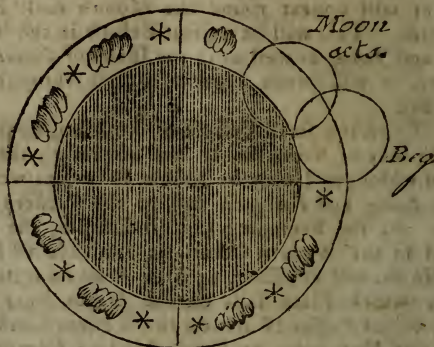 Moon
acts.
Beg